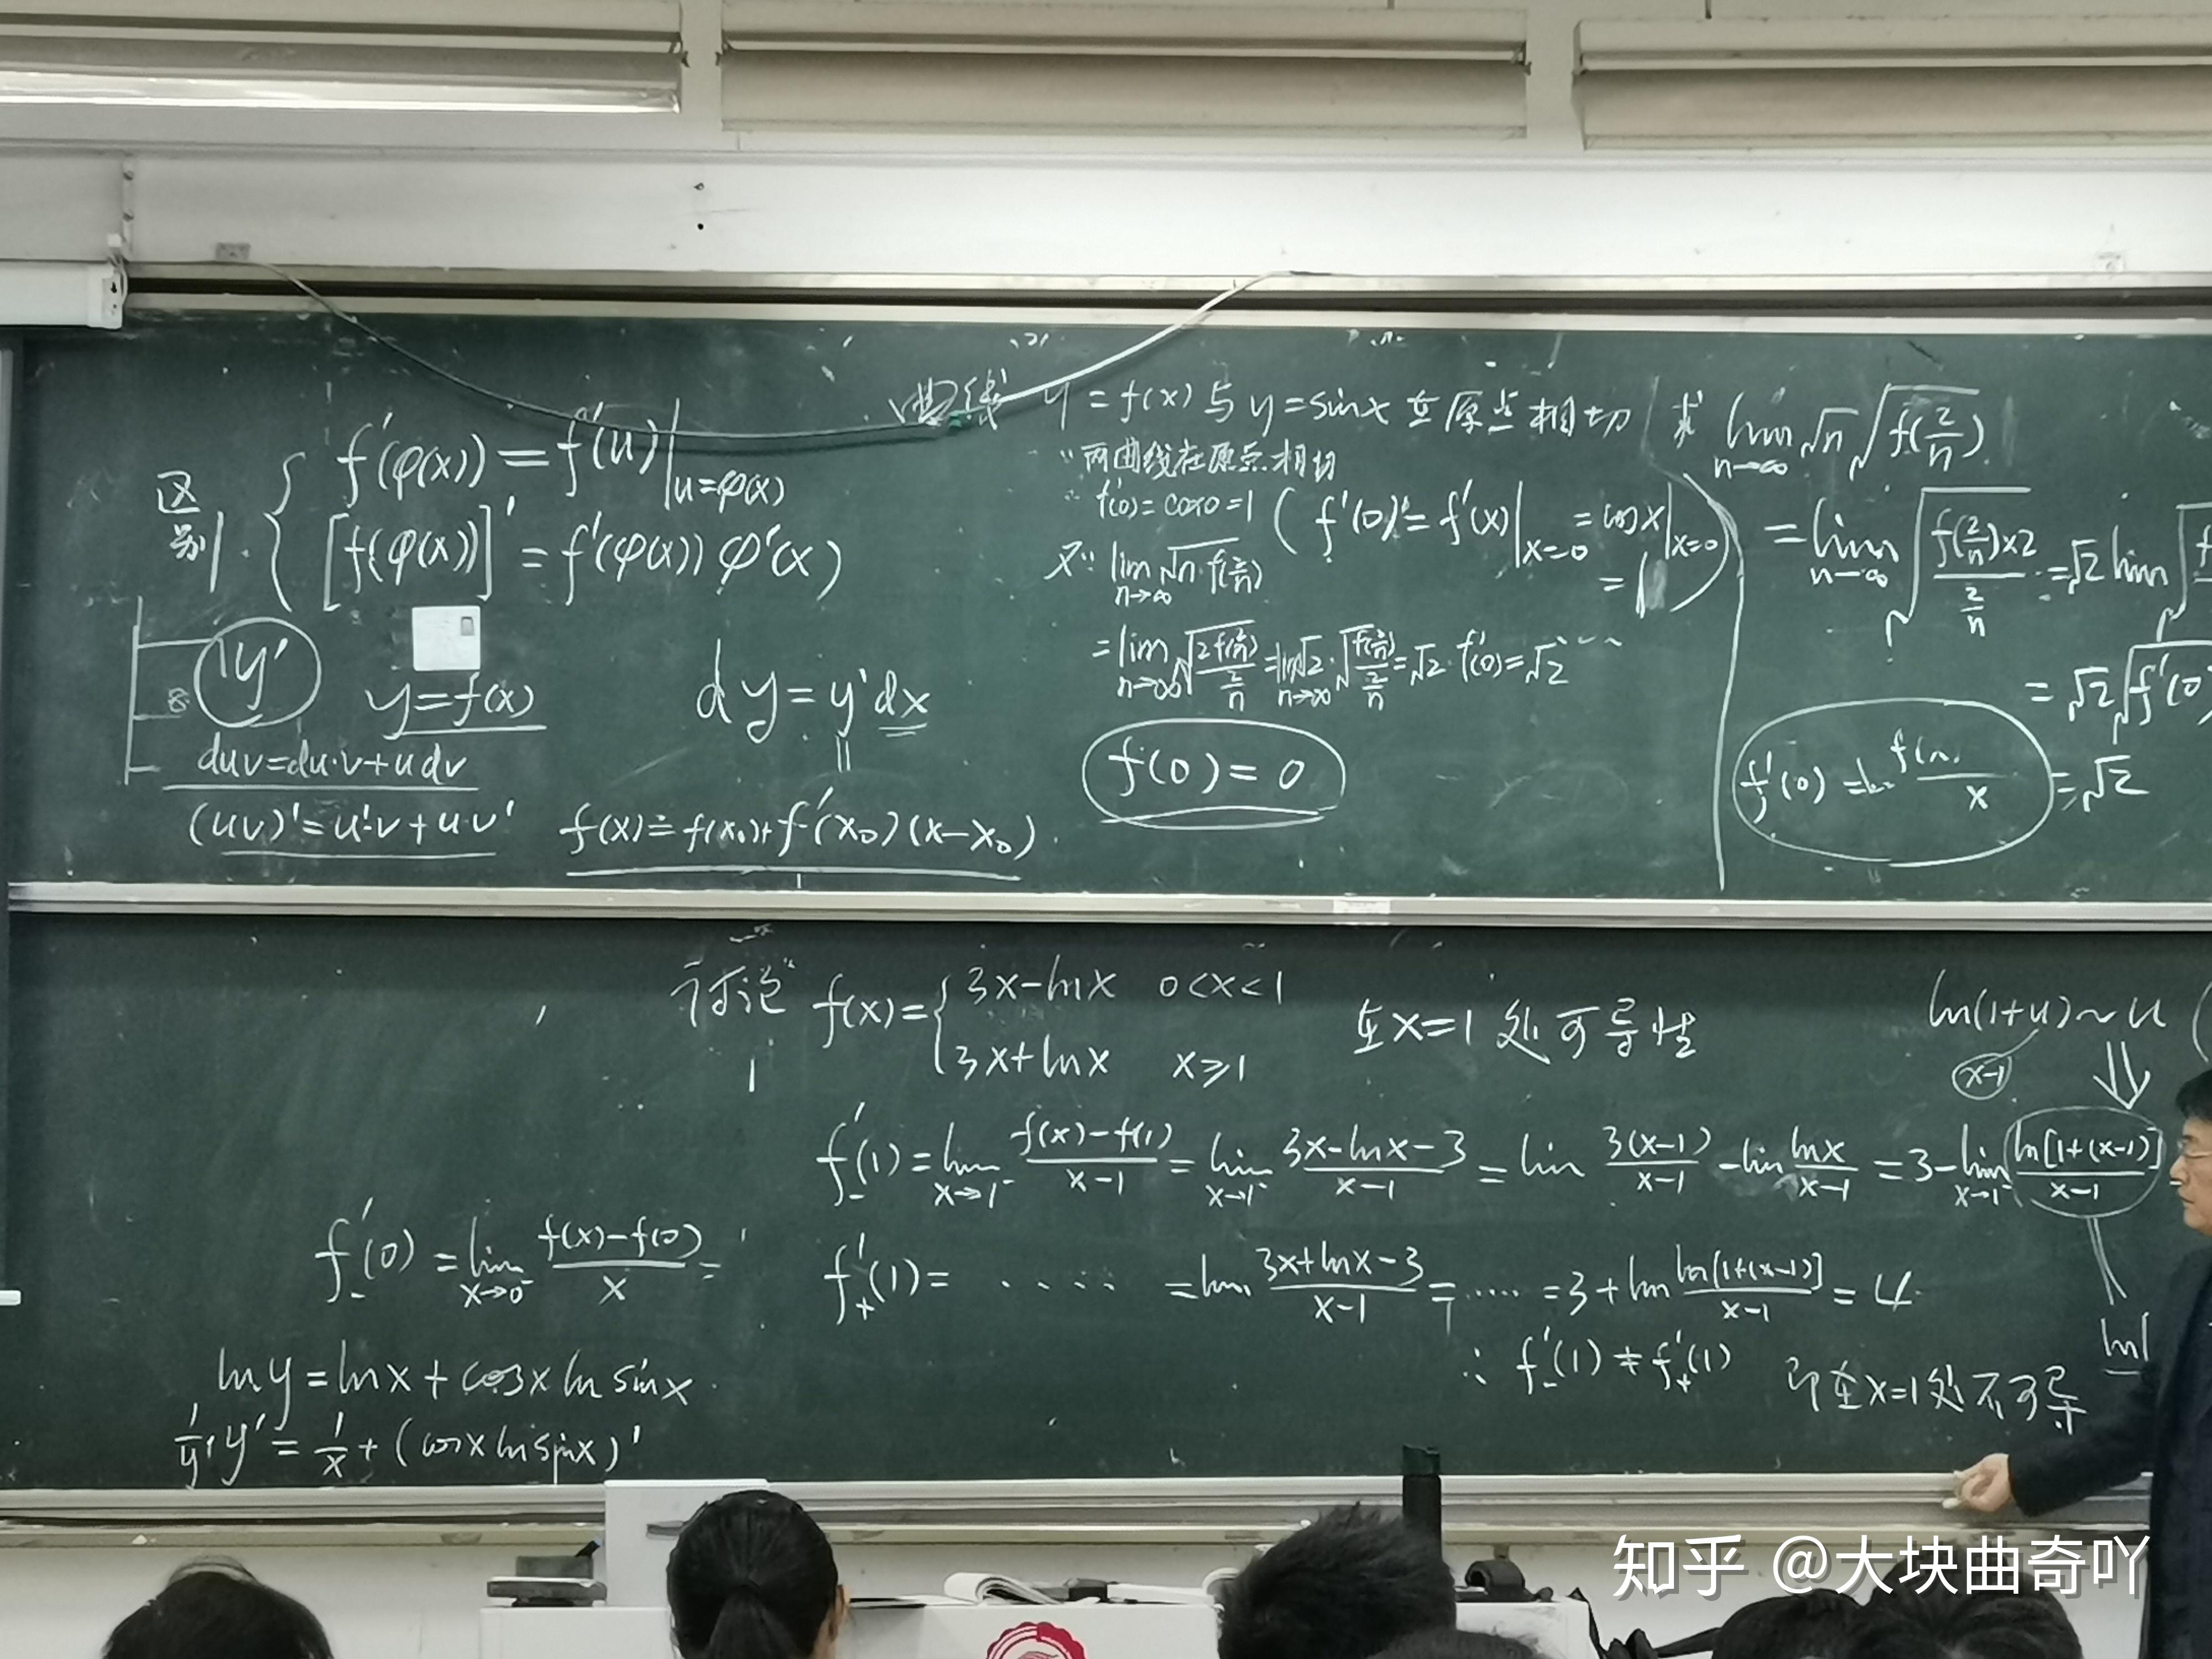 区别 { f'(φ(x)) = f'(u)|u=φ(x)
[f(φ(x))]' = f'(φ(x)) φ'(x)
y'
y=f(x)
dy = y'dx
duv=du·v+udv
(uv)'=u'·v+u·v'
f(x)≐f(x₀)+f'(x₀)(x-x₀).
曲线 y=f(x)与y=sinx在原点相切 求 lim n→∞ √n √f(2/n)
∵两曲线在原点相切
∴ f'(0)=cos0=1 (f'(0)=f'(x)|x=0 =cosx|x=0 =1)
又∵ lim n→∞ √n·f(2/n)
=lim n→∞ √(2f(2/n)/(2/n)) =lim n→∞ √2·√(f(2/n)/(2/n)) =√2·f'(0)=√2
f(0)=0
=lim n→∞ √(f(2/n)×2/(2/n)) =√2 lim
=√2 √f'(0)
f'(0)=
x
=√2
讨论 f(x)={ 3x-lnx 0<x<1
3x+lnx x≥1
在x=1处可导性
ln(1+u)~u
x-1
f'₋(1)=lim x→1⁻ (f(x)-f(1))/(x-1) =lim x→1⁻ (3x-lnx-3)/(x-1) =lim 3(x-1)/(x-1) -lim lnx/(x-1) =3-lim x→1⁻ ln[1+(x-1)]/(x-1)
f'₊(1)= ···· =lim (3x+lnx-3)/(x-1) =····=3+lim ln[1+(x-1)]/(x-1) =4
∴ f'₋(1)≠f'₊(1) 即在x=1处不可导
f'₋(0)=lim x→0⁻ (f(x)-f(0))/x =
lny=lnx+cosx ln sinx
1/y·y'=1/x+(cosx ln sinx)'
知乎 @大块曲奇吖